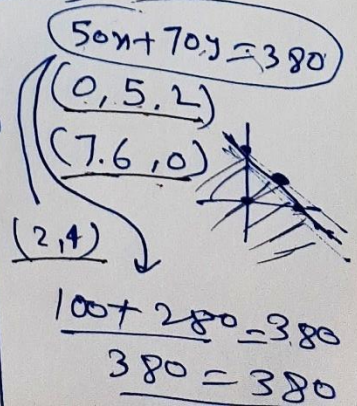 50x + 70y = 380
(0, 5.2)
(7.6, 0)
(2,4)
100 + 280 = 380
380 = 380